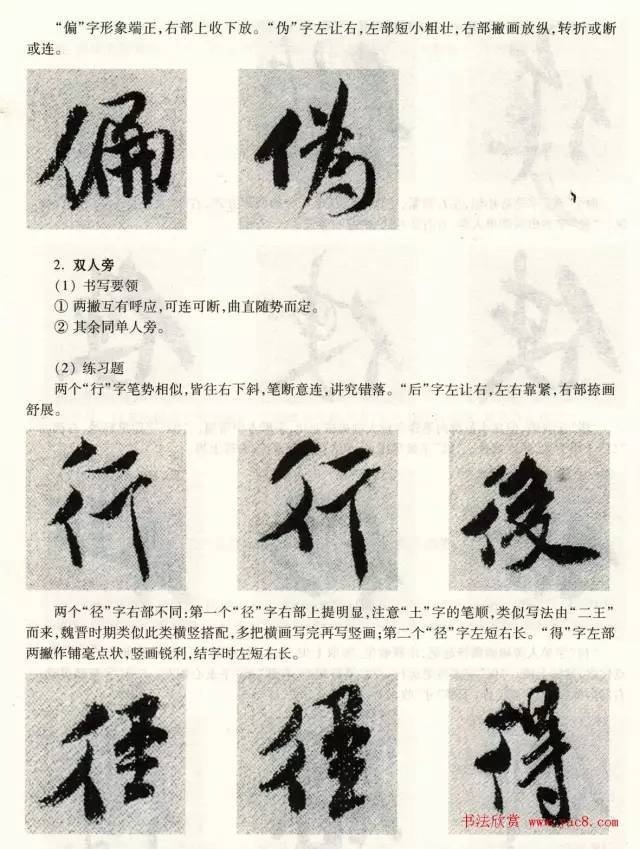 “偏”字形象端正,右部上收下放。“伪”字左让右,左部短小粗壮,右部撇画放纵,转折或断
或连。
偏 伪
2. 双人旁
(1) 书写要领
① 两撇互有呼应,可连可断,曲直随势而定。
② 其余同单人旁。
(2) 练习题
两个“行”字笔势相似,皆往右下斜,笔断意连,讲究错落。“后”字左让右,左右靠紧,右部捺画
舒展。
行 行 後
两个“径”字右部不同:第一个“径”字右部上提明显,注意“土”字的笔顺,类似写法由“二王”
而来,魏晋时期类似此类横竖搭配,多把横画写完再写竖画;第二个“径”字左短右长。“得”字左部
两撇作铺毫点状,竖画锐利,结字时左短右长。
径 径 得
书法欣赏 www.yac8.com